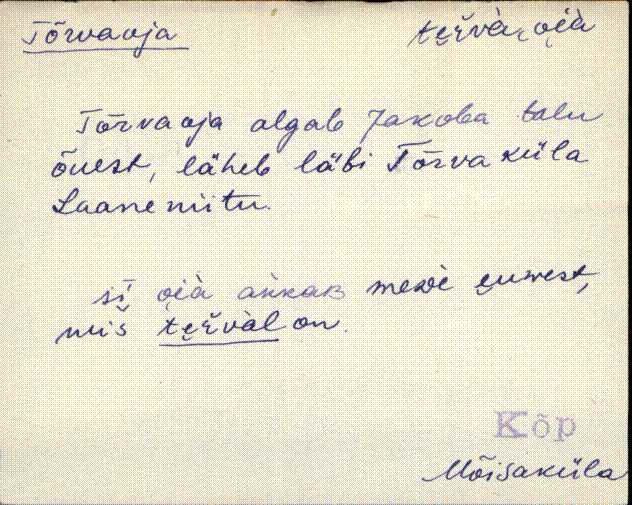 Tõrvaoja tęrvà, ǫi̯à
Tõrvaoja algab Jakoba talu
õuest, läheb läbi Tõrvaküla
Laaneniitu.
sī ǫi̯à aƙƙaʙ
miš tęrvàl on.
Kõp
Mõisaküla